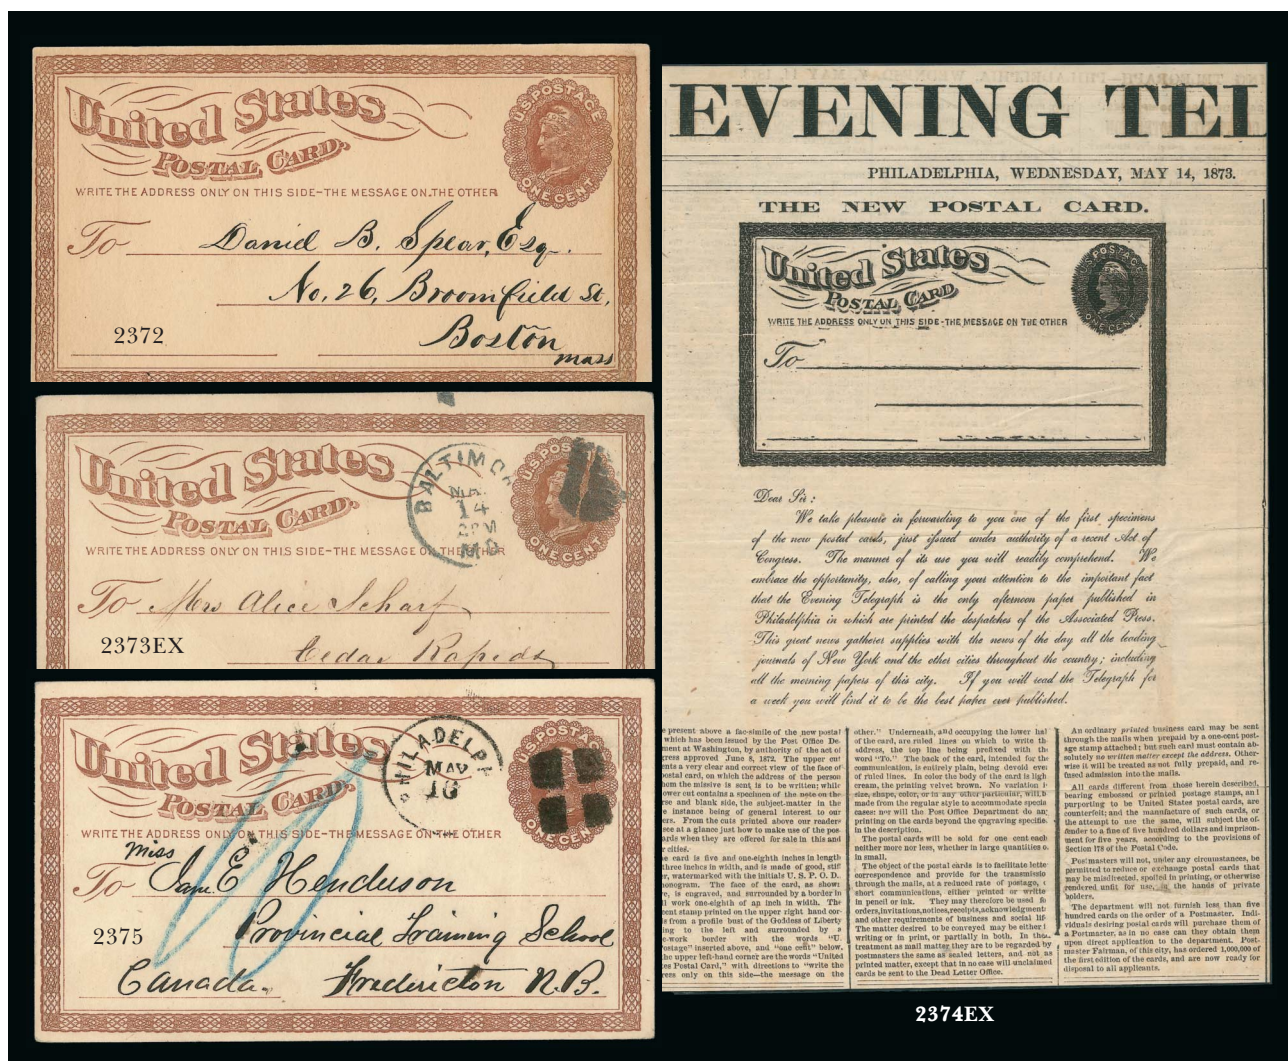 United States
POSTAL CARD.
U.S. POSTAGE
ONE CENT
WRITE THE ADDRESS ONLY ON THIS SIDE-THE MESSAGE ON THE OTHER
To Daniel B. Spear, Esq.
No. 26, Broomfield St,
Boston
Mass
2372
United States
POSTAL CARD.
BALTIMO
14
MD
U.S. POS
ONE CENT
WRITE THE ADDRESS ONLY ON THIS SIDE-THE MESSAGE ON THE OTHER
To Mrs Alice Scharf
Cedar Rapids
2373EX
United States
POSTAL CARD.
PHILADELPH
MAY
16
U.S. POSTAGE
ONE CENT
WRITE THE ADDRESS ONLY ON THIS SIDE-THE MESSAGE ON THE OTHER
Miss
To Jane E Henderson
Provincial Training School
Canada. Fredericton N.B.
2375
EVENING TEL
PHILADELPHIA, WEDNESDAY, MAY 14, 1873.
THE NEW POSTAL CARD.
United States
POSTAL CARD
U.S. POSTAGE
ONE CENT
WRITE THE ADDRESS ONLY ON THIS SIDE-THE MESSAGE ON THE OTHER
To
Dear Sir:
We take pleasure in forwarding to you one of the first specimens
of the new postal cards, just issued under authority of a recent Act of
Congress. The manner of its use you will readily comprehend. We
embrace the opportunity, also, of calling your attention to the important fact
that the Evening Telegraph is the only afternoon paper published in
Philadelphia in which are printed the despatches of the Associated Press.
This great news gatherer supplies with the news of the day all the leading
journals of New York and the other cities throughout the country; including
all the morning papers of this city. If you will read the Telegraph for
a week you will find it to be the best paper ever published.
present above a fac-simile of the new postal
which has been issued by the Post Office De-
ment at Washington, by authority of the act of
gress approved June 8, 1872. The upper cut
ents a very clear and correct view of the face of
postal card, on which the address of the person
hom the missive is sent is to be written; while
ower cut contains a specimen of the note on the
rse and blank side, the subject-matter in the
instance being of general interest to our
ers. From the cuts printed above our readers
see at a glance just how to make use of the pos-
ards when they are offered for sale in this and
r cities.
e card is five and one-eighth inches in length
three inches in width, and is made of good, stiff
r, watermarked with the initials U. S. P. O. D.
onogram. The face of the card, as shown
e, is engraved, and surrounded by a border in
l work one-eighth of an inch in width. The
cent stamp printed on the upper right hand cor-
is from a profile bust of the Goddess of Liberty
ing to the left and surrounded by a
e-work border with the words "U.
ostage" inserted above, and "one cent" below.
he upper left-hand corner are the words "United
es Postal Card," with directions to "write the
ess only on this side—the message on the
other." Underneath, and occupying the lower hal
of the card, are ruled lines on which to write th
address, the top line being prefixed with th
word "To." The back of the card, intended for the
communication, is entirely plain, being devoid even
of ruled lines. In color the body of the card is ligh
cream, the printing velvet brown. No variation i
size, shape, color, or in any other particular, will b
made from the regular style to accommodate specia
cases: nor will the Post Office Department do any
printing on the cards beyond the engraving specifie
in the description.
The postal cards will be sold for one cent each
neither more nor less, whether in large quantities o
in small.
The object of the postal cards is to facilitate lette
correspondence and provide for the transmissio
through the mails, at a reduced rate of postage, o
short communications, either printed or writte
in pencil or ink. They may therefore be used fo
orders, invitations, notices, receipts, acknowledgment
and other requirements of business and social lif
The matter desired to be conveyed may be either i
writing or in print, or partially in both. In thei
treatment as mail matter they are to be regarded by
postmasters the same as sealed letters, and not as
printed matter, except that in no case will unclaimed
cards be sent to the Dead Letter Office.
An ordinary printed business card may be sent
through the mails when prepaid by a one-cent post-
age stamp attached; but such card must contain ab-
solutely no written matter except the address. Other-
wise it will be treated as not fully prepaid, and re-
fused admission into the mails.
All cards different from those herein described,
bearing embossed or printed postage stamps, and
purporting to be United States postal cards, are
counterfeit; and the manufacture of such cards, or
the attempt to use the same, will subject the of-
fender to a fine of five hundred dollars and imprison-
ment for five years, according to the provisions of
Section 178 of the Postal Code.
Postmasters will not, under any circumstances, be
permitted to reduce or exchange postal cards that
may be misdirected, spoiled in printing, or otherwise
rendered unfit for use, in the hands of private
holders.
The department will not furnish less than five
hundred cards on the order of a Postmaster. Indi-
viduals desiring postal cards will purchase them of
a Postmaster, as in no case can they obtain them
upon direct application to the department. Post-
master Fairman, of this city, has ordered 1,000,000 of
the first edition of the cards, and are now ready for
disposal to all applicants.
2374EX